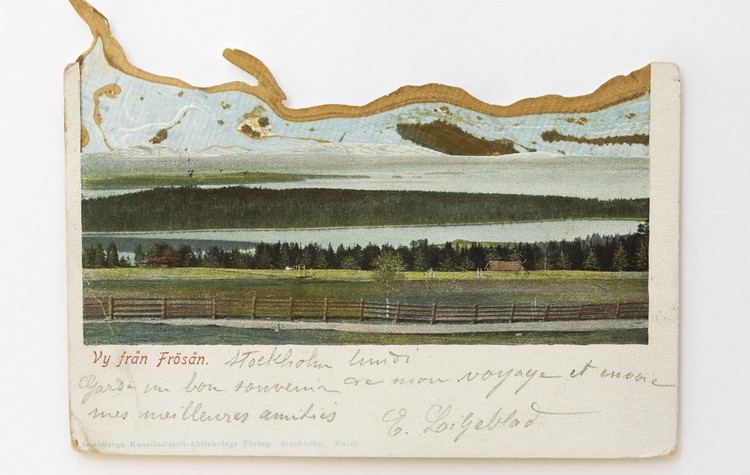 Vy från Frösån. Stockholm lundi
Garde un bon souvenir de mon voyage et envoie
mes meilleures amitiés E. Liljeblad
Granbergs Konstindustri-Aktiebolags Förlag, Stockholm.